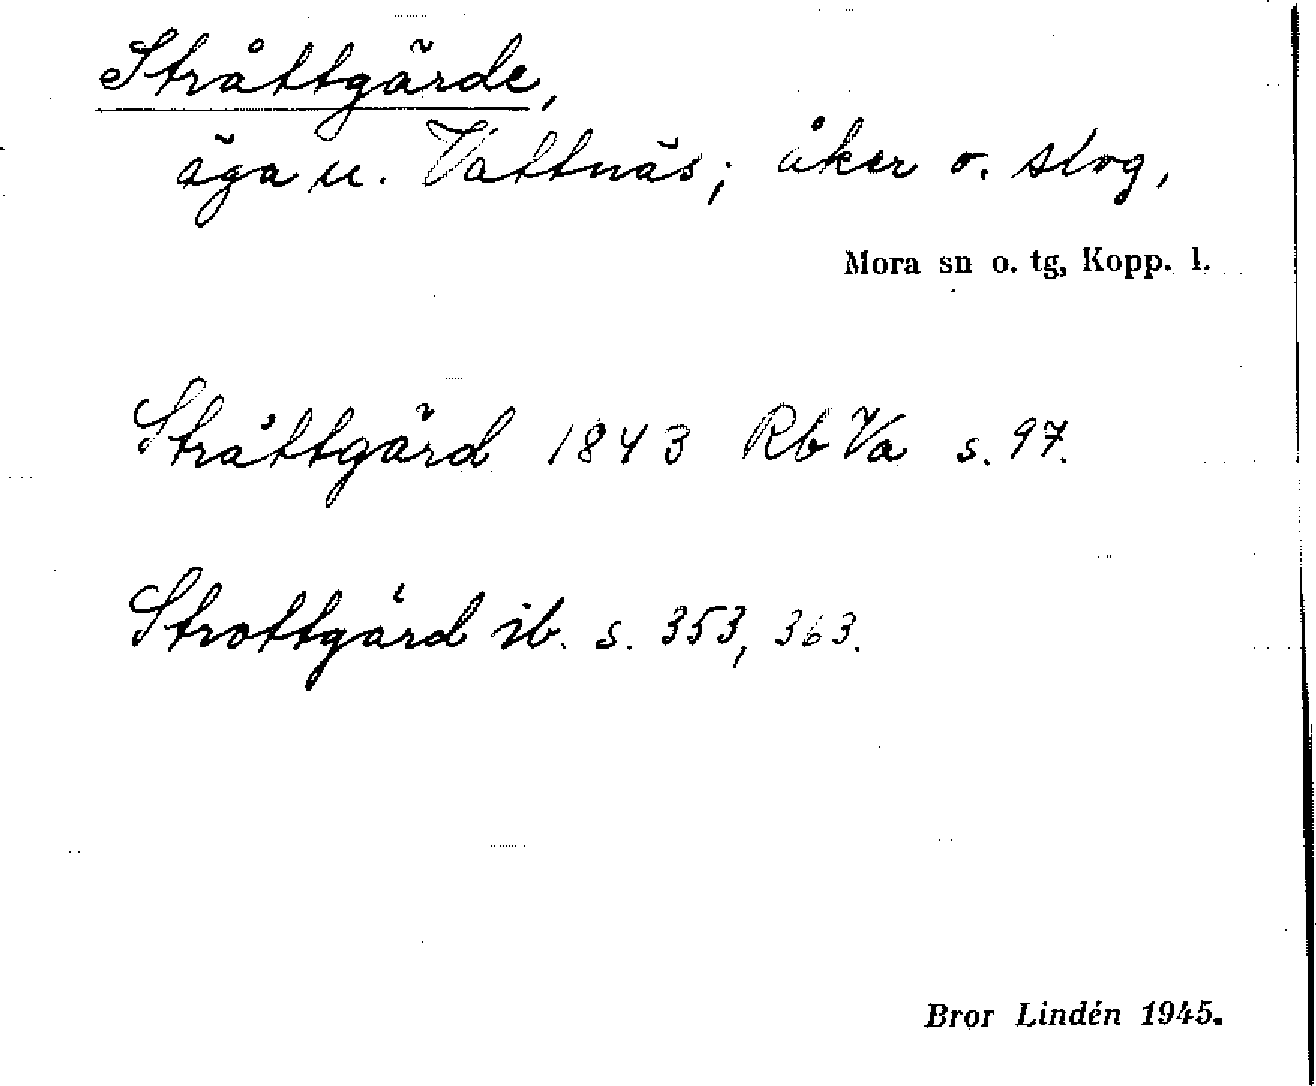 Stråttgärde,
äga u. Vattnäs; åker o. slog,
Mora sn o. tg, Kopp. l.
Stråttgärd 1843 Rb Va s. 97.
Strottgärd ib. s. 353, 363.
Bror Lindén 1945.